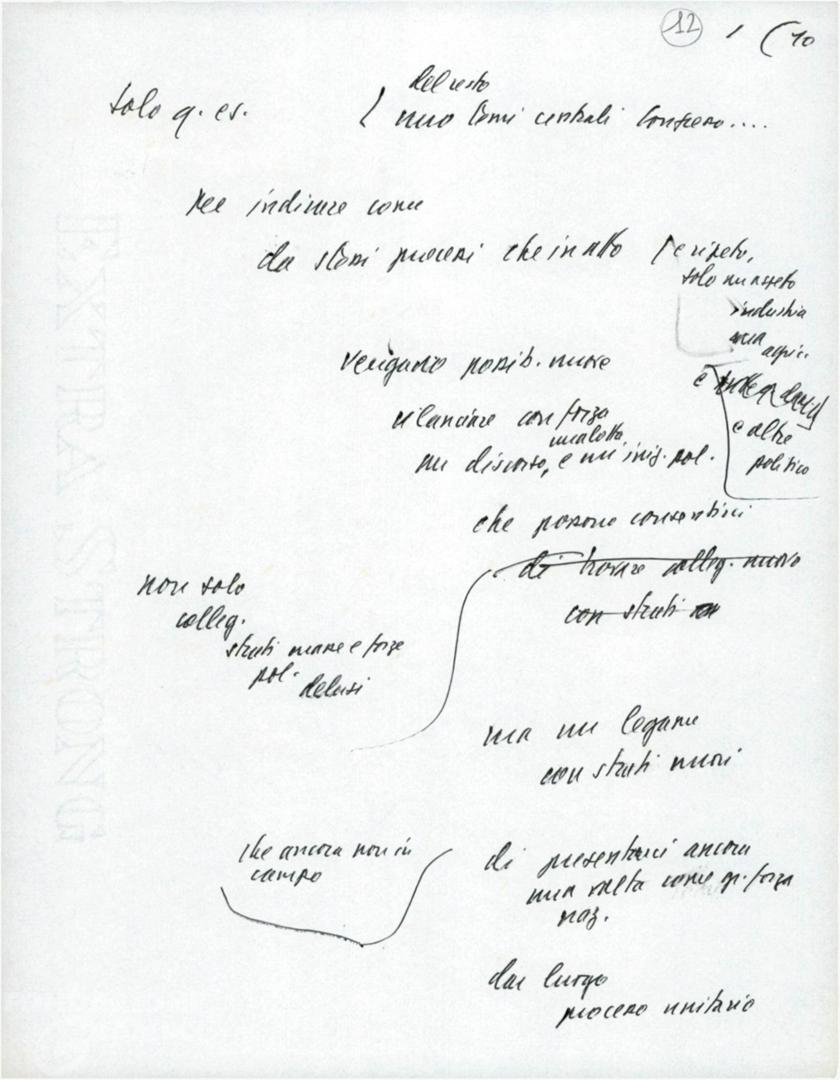 12 1 (10
del resto
solo q. es. uno temi centrali Congresso....
Per indicare come
da stessi processi che in atto
e ripeto,
solo un assetto
industria
ma
agric.
e
e altre
politico
vengano possib. nuove
rilanciare con forza
una lotta
un discorso, e un' iniz. pol.
che possono consentirci
di trovare colleg. nuovo
con strati
non solo
colleg.
strati masse e forze
pol.
delusi
ma un legame
con strati nuovi
che ancora non in
campo
di presentarci ancora
una volta come gr. forza
naz.
dar luogo
processo unitario
EXTRA STRONG